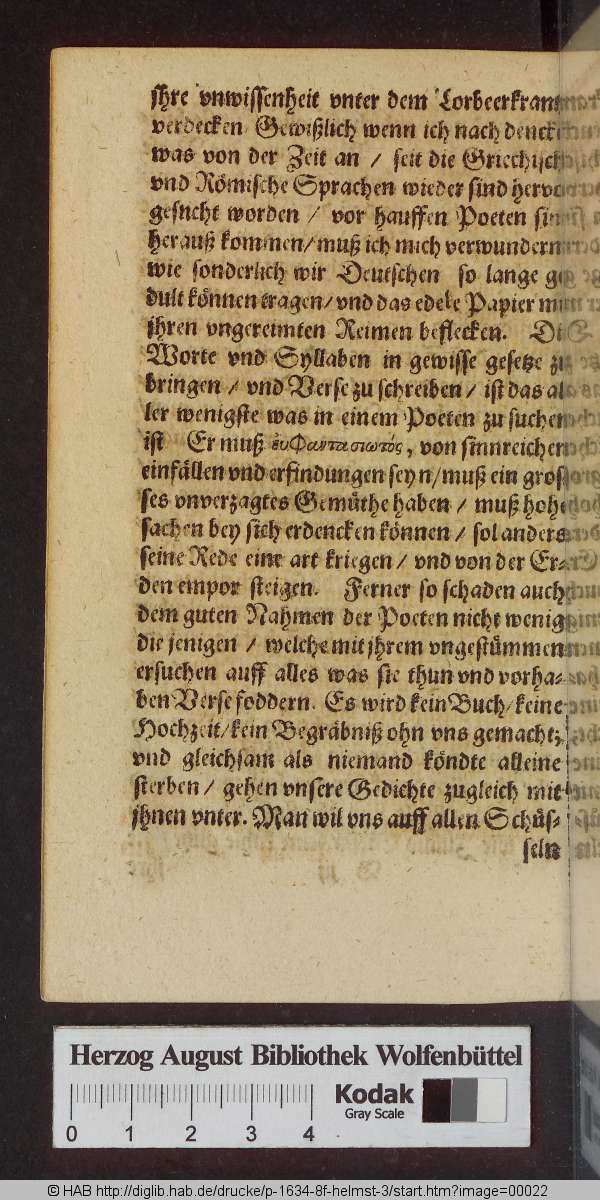 jhre vnwissenheit vnter dem Lorbeerkran
verdecken Gewißlich wenn ich nach denck
was von der Zeit an / seit die Griechisch
vnd Römische Sprachen wieder sind hervo
gesucht worden / vor hauffen Poeten sin
herauß kommen/ muß ich mich verwundern
wie sonderlich wir Deutschen so lange ge
dult können tragen/ vnd das edele Papier mit
jhren vngereimten Reimen beflecken. Di
Worte vnd Syllaben in gewisse gesetze zu
bringen / vnd Verse zu schreiben / ist das al
ler wenigste was in einem Poeten zu suchen
ist Er muß ἐυΦαντασιωτός, von sinnreichen
einfällen vnd erfindungen seyn/ muß ein gros
ses vnverzagtes Gemüthe haben / muß hohe
sachen bey sich erdencken können / sol anders
seine Rede eine art kriegen / vnd von der Er-
den empor steigen. Ferner so schaden auch
dem guten Nahmen der Poeten nicht wenig
die jenigen / welche mit jhrem vngestümmen
ersuchen auff alles was sie thun vnd vorha-
ben Verse foddern. Es wird kein Buch/ keine
Hochzeit/ kein Begräbniß ohn vns gemacht;
vnd gleichsam als niemand köndte alleine
sterben / gehen vnsere Gedichte zugleich mit
jhnen vnter. Man wil vns auff allen Schüs-
seln
Herzog August Bibliothek Wolfenbüttel
0 1 2 3 4
Kodak
Gray Scale
© HAB http://diglib.hab.de/drucke/p-1634-8f-helmst-3/start.htm?image=00022